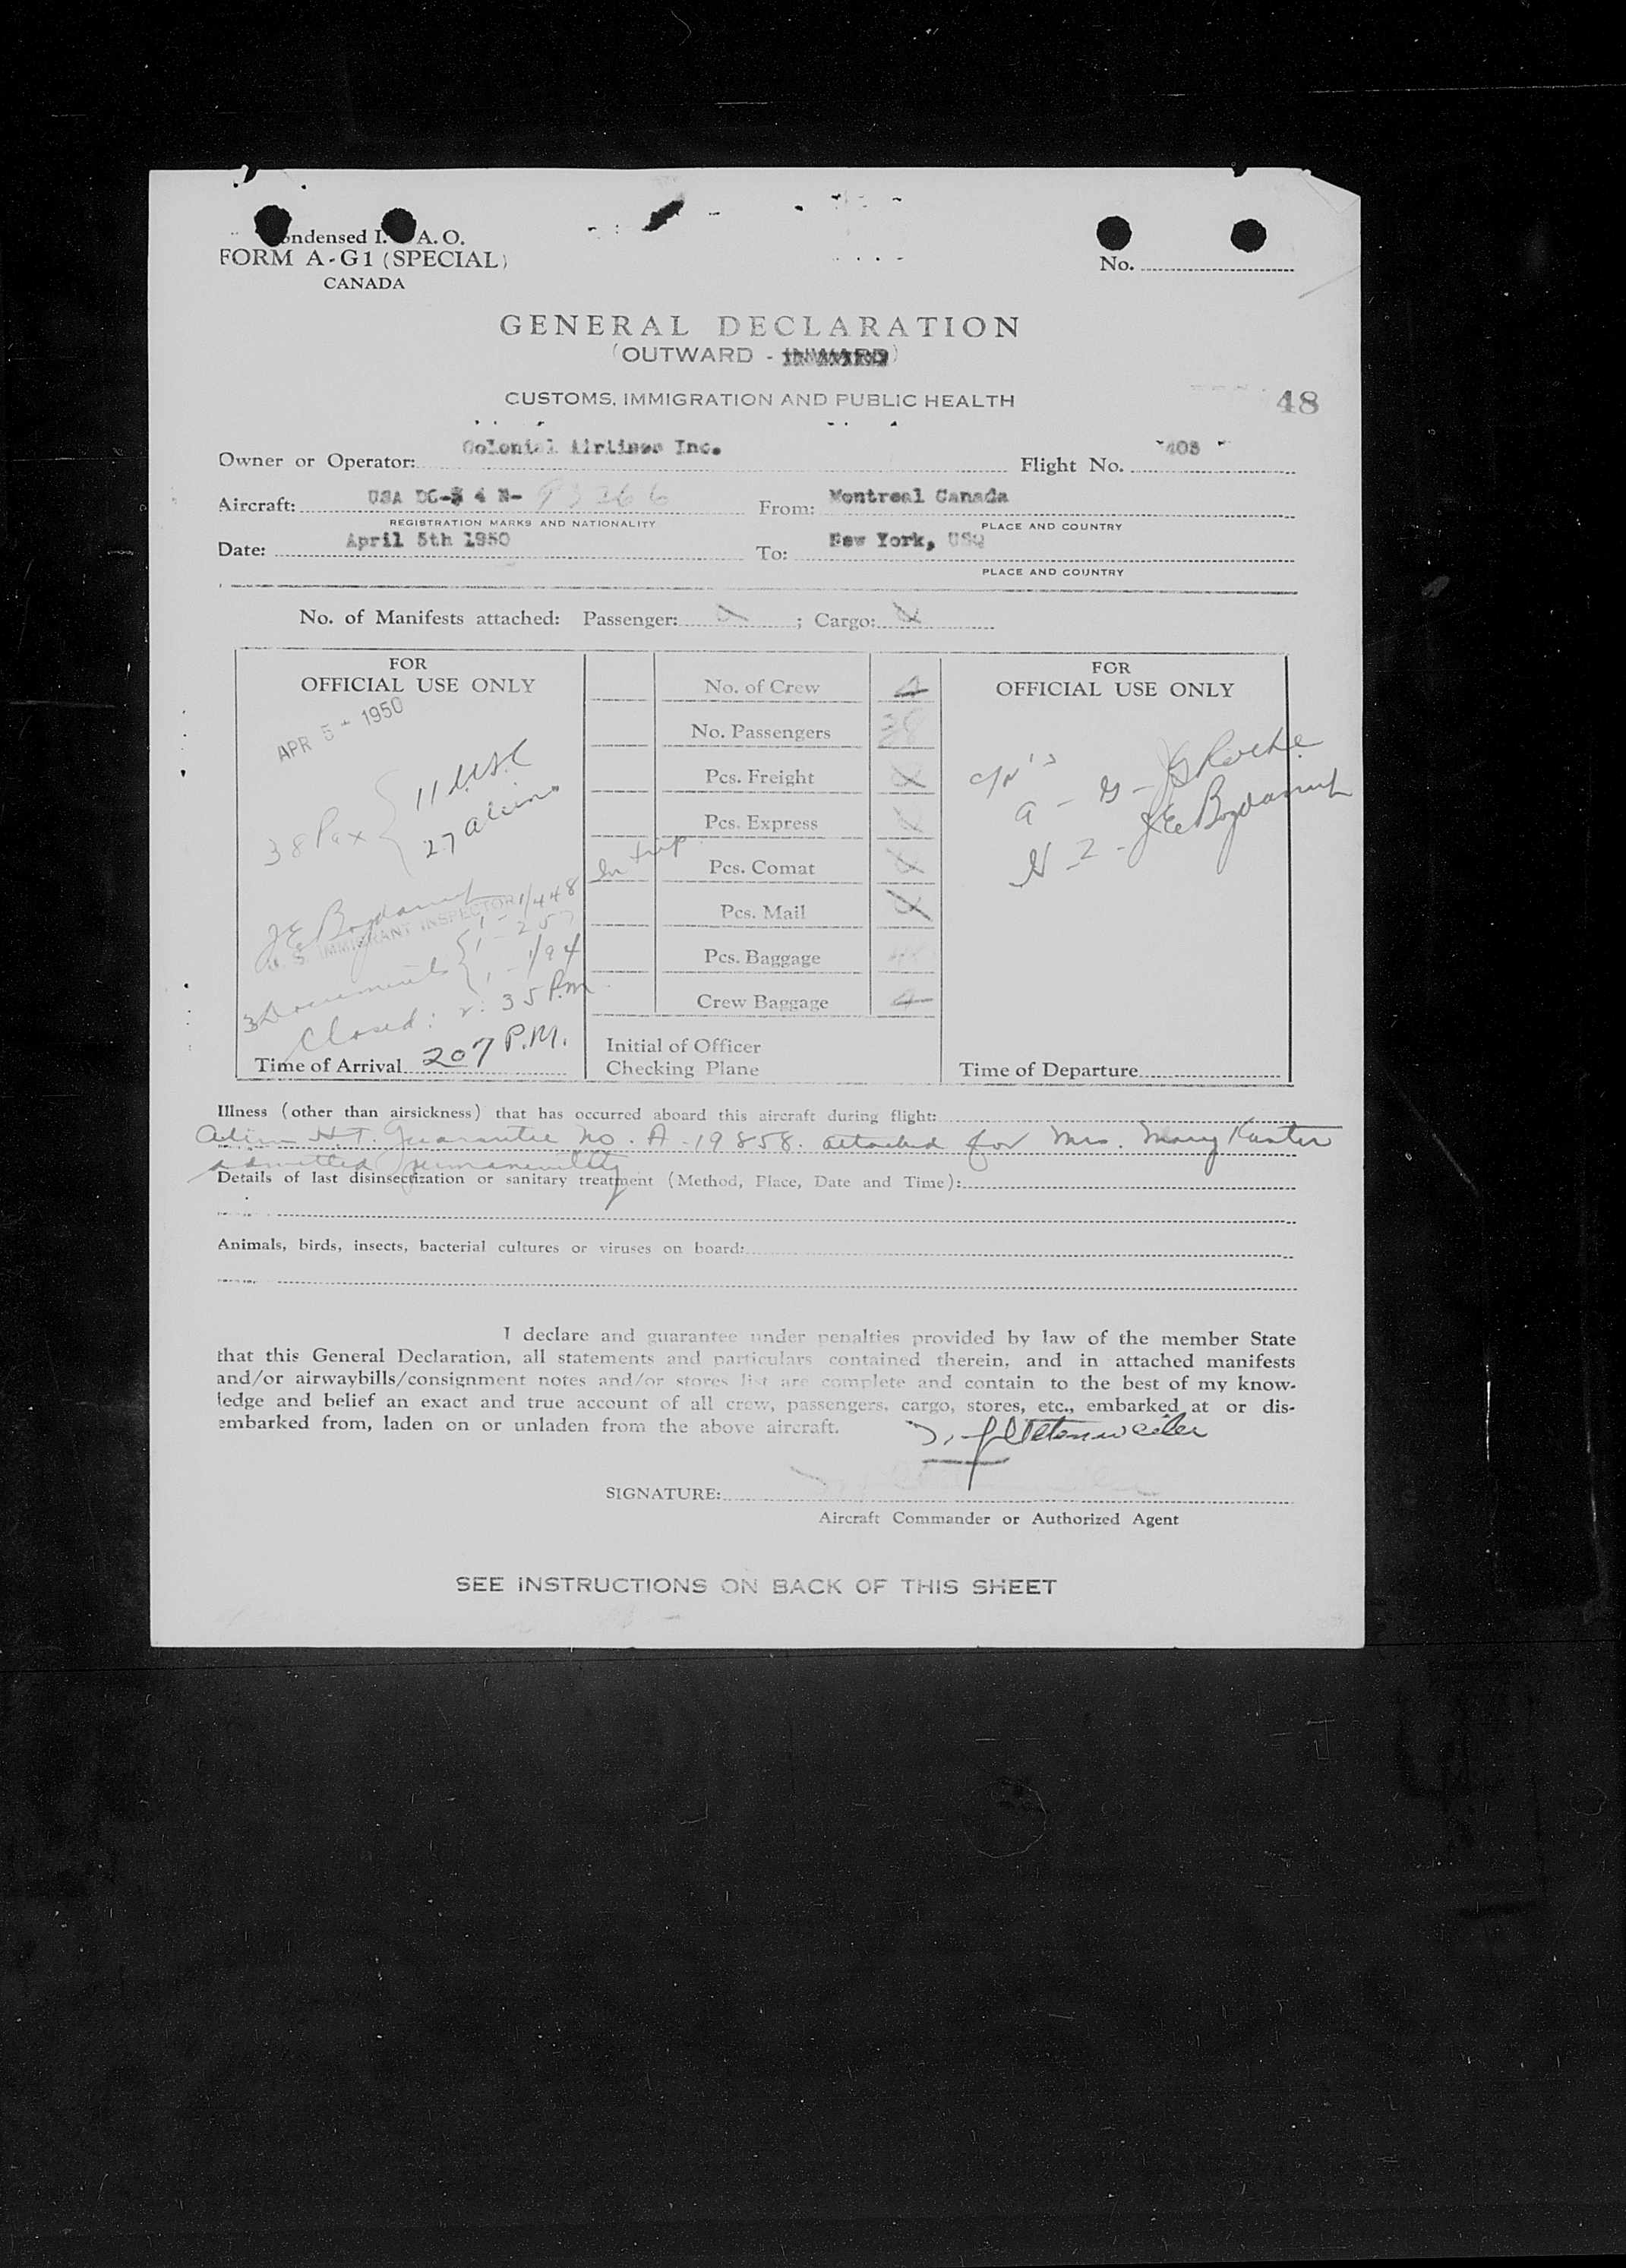 ondensed I. A. O.
FORM A-G1 (SPECIAL)
CANADA
No.
GENERAL DECLARATION
(OUTWARD - INWARD)
CUSTOMS, IMMIGRATION AND PUBLIC HEALTH
48
Owner or Operator: Colonial Airlines Inc.
Flight No. 403
Aircraft: USA DC- 4 N- 93266
From: Montreal Canada
REGISTRATION MARKS AND NATIONALITY
PLACE AND COUNTRY
Date: April 5th 1950
To: New York, USQ
PLACE AND COUNTRY
No. of Manifests attached: Passenger: ; Cargo:
FOR
OFFICIAL USE ONLY
APR 5 - 1950
38 Pax { 11 USC
27 aliens
J E Bogdanuk
U. S. IMMIGRANT INSPECTOR
3 Documents { 1 - 1/448
1 - 257
1 - 1/94
Closed: 2:35 P.m
Time of Arrival 207 P.M.
In trip
No. of Crew 4
No. Passengers 38
Pcs. Freight
Pcs. Express
Pcs. Comat
Pcs. Mail
Pcs. Baggage
Crew Baggage 4
Initial of Officer
Checking Plane
FOR
OFFICIAL USE ONLY
Time of Departure
Illness (other than airsickness) that has occurred aboard this aircraft during flight:
Alien H.T. Guarantee No. A-19858 attached for Mrs. Mary
admitted permanently
Details of last disinsectization or sanitary treatment (Method, Place, Date and Time):
Animals, birds, insects, bacterial cultures or viruses on board:
I declare and guarantee under penalties provided by law of the member State
that this General Declaration, all statements and particulars contained therein, and in attached manifests
and/or airwaybills/consignment notes and/or stores list are complete and contain to the best of my know-
ledge and belief an exact and true account of all crew, passengers, cargo, stores, etc., embarked at or dis-
embarked from, laden on or unladen from the above aircraft.
SIGNATURE:
Aircraft Commander or Authorized Agent
SEE INSTRUCTIONS ON BACK OF THIS SHEET